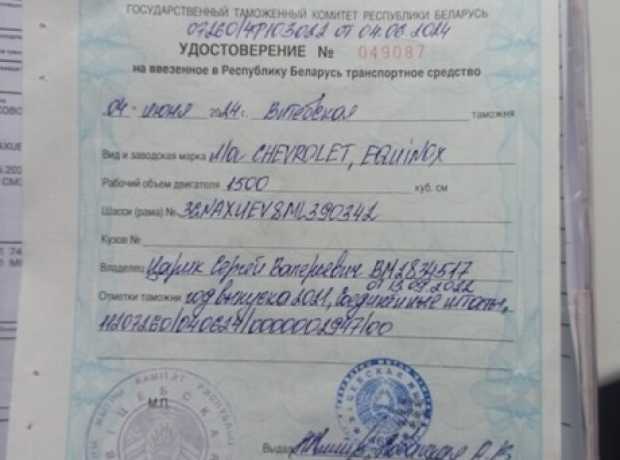 ГОСУДАРСТВЕННЫЙ ТАМОЖЕННЫЙ КОМИТЕТ РЕСПУБЛИКИ БЕЛАРУСЬ
07260/4Р103022 от 04.06.2024
УДОСТОВЕРЕНИЕ № 049087
на ввезенное в Республику Беларусь транспортное средство
04 июня 2024 г. Витебская таможня
Вид и заводская марка л/а CHEVROLET, EQUINOX
Рабочий объем двигателя 1500 куб. см
Шасси (рама) № 3GNAXUEV8ML390342
Кузов №
Владелец Царик Сергей Валерьевич ВМ2834517
от 13.09.2022
Отметки таможни год выпуска 2021, Соединённые Штаты,
11207260/040624/0000002947/00
М.П.
Выдал